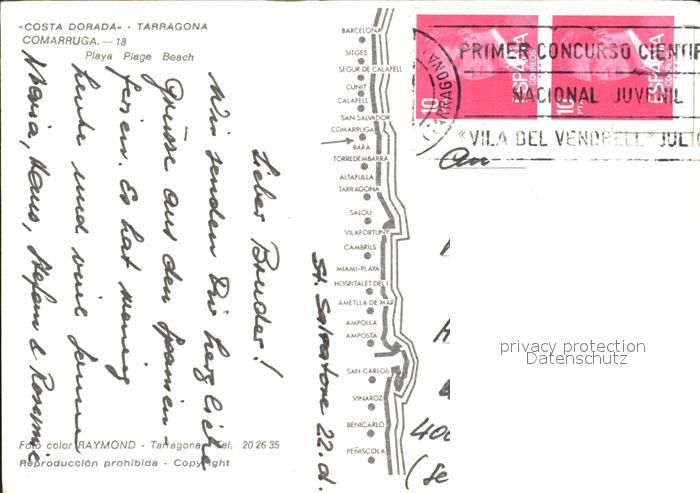 "COSTA DORADA" - TARRAGONA
COMARRUGA. — 18
Playa Plage Beach
St. Salvatore 22.d.
Lieber Bruder!
Wir senden Dir herzliche
Grüsse aus den Spanien-
ferien. Es hat wenig
Leute und viel Sonne
Maria, Hans, Stefan & Rosmarie
Foto color RAYMOND - Tarragona - Tel. 20 26 35
Reproducción prohibida - Copyright
BARCELONA
SITGES
SEGUR DE CALAFELL
CUNIT
CALAFELL
SAN SALVADOR
COMARRUGA
BARA
TORREDEMBARRA
ALTAFULLA
TARRAGONA
SALOU
VILAFORTUNY
CAMBRILS
MIAMI-PLAYA
HOSPITALET DEL I.
AMETLLA DE MAR
AMPOLLA
AMPOSTA
SAN CARLOS
VINAROZ
BENICARLO
PEÑISCOLA
ESPAÑA
CORREOS
10 PTAS
ESPAÑA
CORREOS
10 PTAS
(TARRAGONA)
PRIMER CONCURSO CIENTIF
NACIONAL JUVENIL
"VILA DEL VENDRELL" JULIO
An
400
privacy protection
Datenschutz